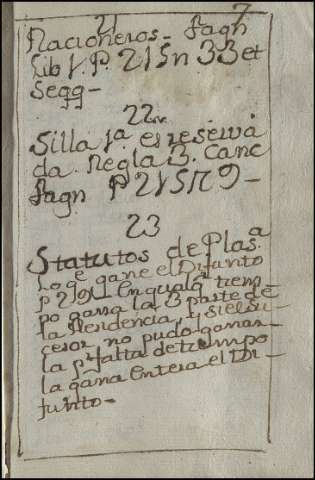 7
21
Racioneros - Fagn
Lib 1. P. 215 n 33 et
Seqq-
22
Silla 1ª. es reserva
da. Regla 3. Canc
Fagn P 215 n 9-
23
Statutos de Plasª
Lo qe gane el Difunto
p 29 En qualq. tiem-
po gana la 3 parte de
la Residencia, y si el Su-
cesor no pudo ganar-
la pr falta de tiempo
la gana Entera el Di-
funto-